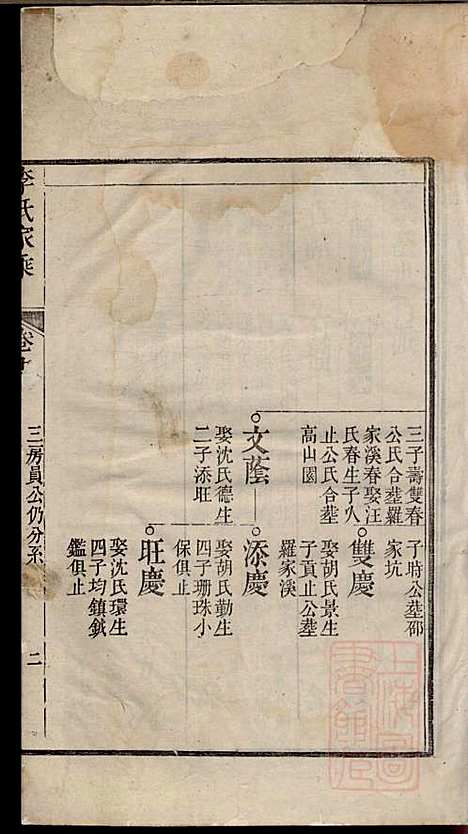 三子壽雙春
公氏合塟羅
家溪春娶汪
氏春生子久
止公氏合塟
高山園
文蔭
娶沈氏德生
二子添旺
子時公塟邵
家坑
雙慶
娶胡氏景生
子貢止公塟
羅家溪
添慶
娶胡氏勤生
四子珊珠小
保俱止
旺慶
娶沈氏環生
四子均鎮鉞
鑑俱止
李氏家乘
卷十
三房員公仍分系
二
上海圖書館藏